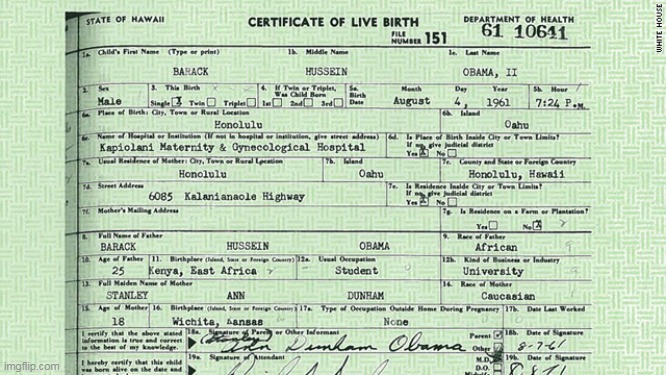 STATE OF HAWAII
CERTIFICATE OF LIVE BIRTH
DEPARTMENT OF HEALTH
FILE NUMBER 151
61 10641
WHITE HOUSE
1a. Child's First Name (Type or print) 1b. Middle Name 1c. Last Name
BARACK HUSSEIN OBAMA, II
2. Sex 3. This Birth 4. If Twin or Triplet, Was Child Born 5a. Birth Date Month Day Year 5b. Hour
Male Single X Twin Triplet 1st 2nd 3rd August 4, 1961 7:24 P.M.
6a. Place of Birth: City, Town or Rural Location 6b. Island
Honolulu Oahu
6c. Name of Hospital or Institution (If not in hospital or institution, give street address) 6d. Is Place of Birth Inside City or Town Limits? If no, give judicial district
Kapiolani Maternity & Gynecological Hospital Yes X No
7a. Usual Residence of Mother: City, Town or Rural Location 7b. Island 7c. County and State or Foreign Country
Honolulu Oahu Honolulu, Hawaii
7d. Street Address 7e. Is Residence Inside City or Town Limits? If no, give judicial district
6085 Kalanianaole Highway Yes X No
7f. Mother's Mailing Address 7g. Is Residence on a Farm or Plantation?
Yes No X
8. Full Name of Father 9. Race of Father
BARACK HUSSEIN OBAMA African
10. Age of Father 11. Birthplace (Island, State or Foreign Country) 12a. Usual Occupation 12b. Kind of Business or Industry
25 Kenya, East Africa Student University
13. Full Maiden Name of Mother 14. Race of Mother
STANLEY ANN DUNHAM Caucasian
15. Age of Mother 16. Birthplace (Island, State or Foreign Country) 17a. Type of Occupation Outside Home During Pregnancy 17b. Date Last Worked
18 Wichita, Kansas None
I certify that the above stated information is true and correct to the best of my knowledge.
18a. Signature of Parent or Other Informant Parent Other 18b. Date of Signature
(Stanley) Ann Dunham Obama 8-7-61
I hereby certify that this child was born alive on the date and
19a. Signature of Attendant M.D. D.O. 19b. Date of Signature
imgflip.com